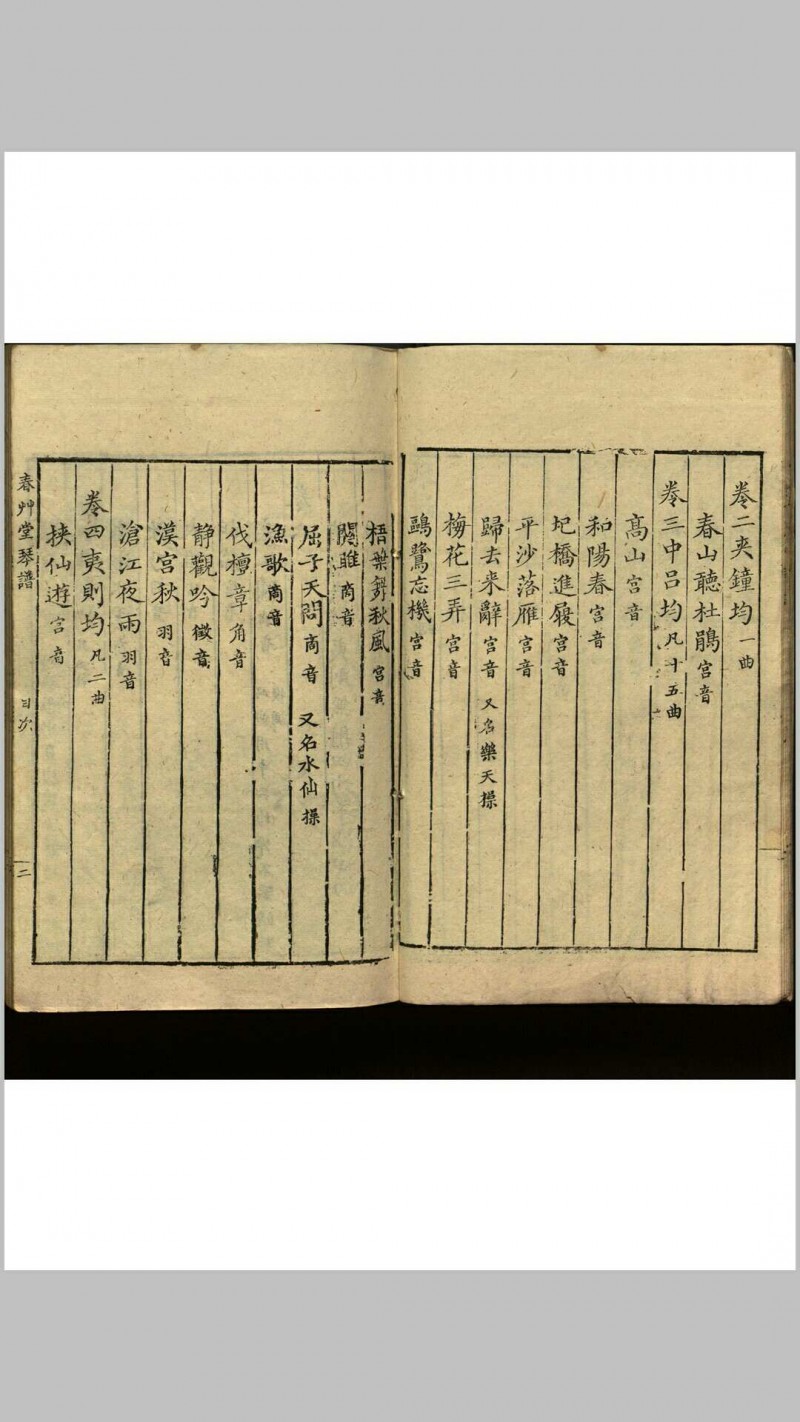 卷二夾鐘均 一曲
春山聽杜鵑 宫音
卷三中呂均 凡十五曲
髙山 宫音
和陽春 宫音
圯橋進履 宫音
平沙落雁 宫音
歸去来辭 宫音 又名樂天操
梅花三弄 宫音
鷗鷺忘機 宫音
梧葉舞秋風 宫音
關雎 商音
屈子天問 商音 又名水仙操
漁歌 商音
伐檀章 角音
静觀吟 徵音
漢宫秋 羽音
滄江夜雨 羽音
卷四夷則均 凡二曲
挾仙遊 宫音
春艸堂琴譜 目次 二